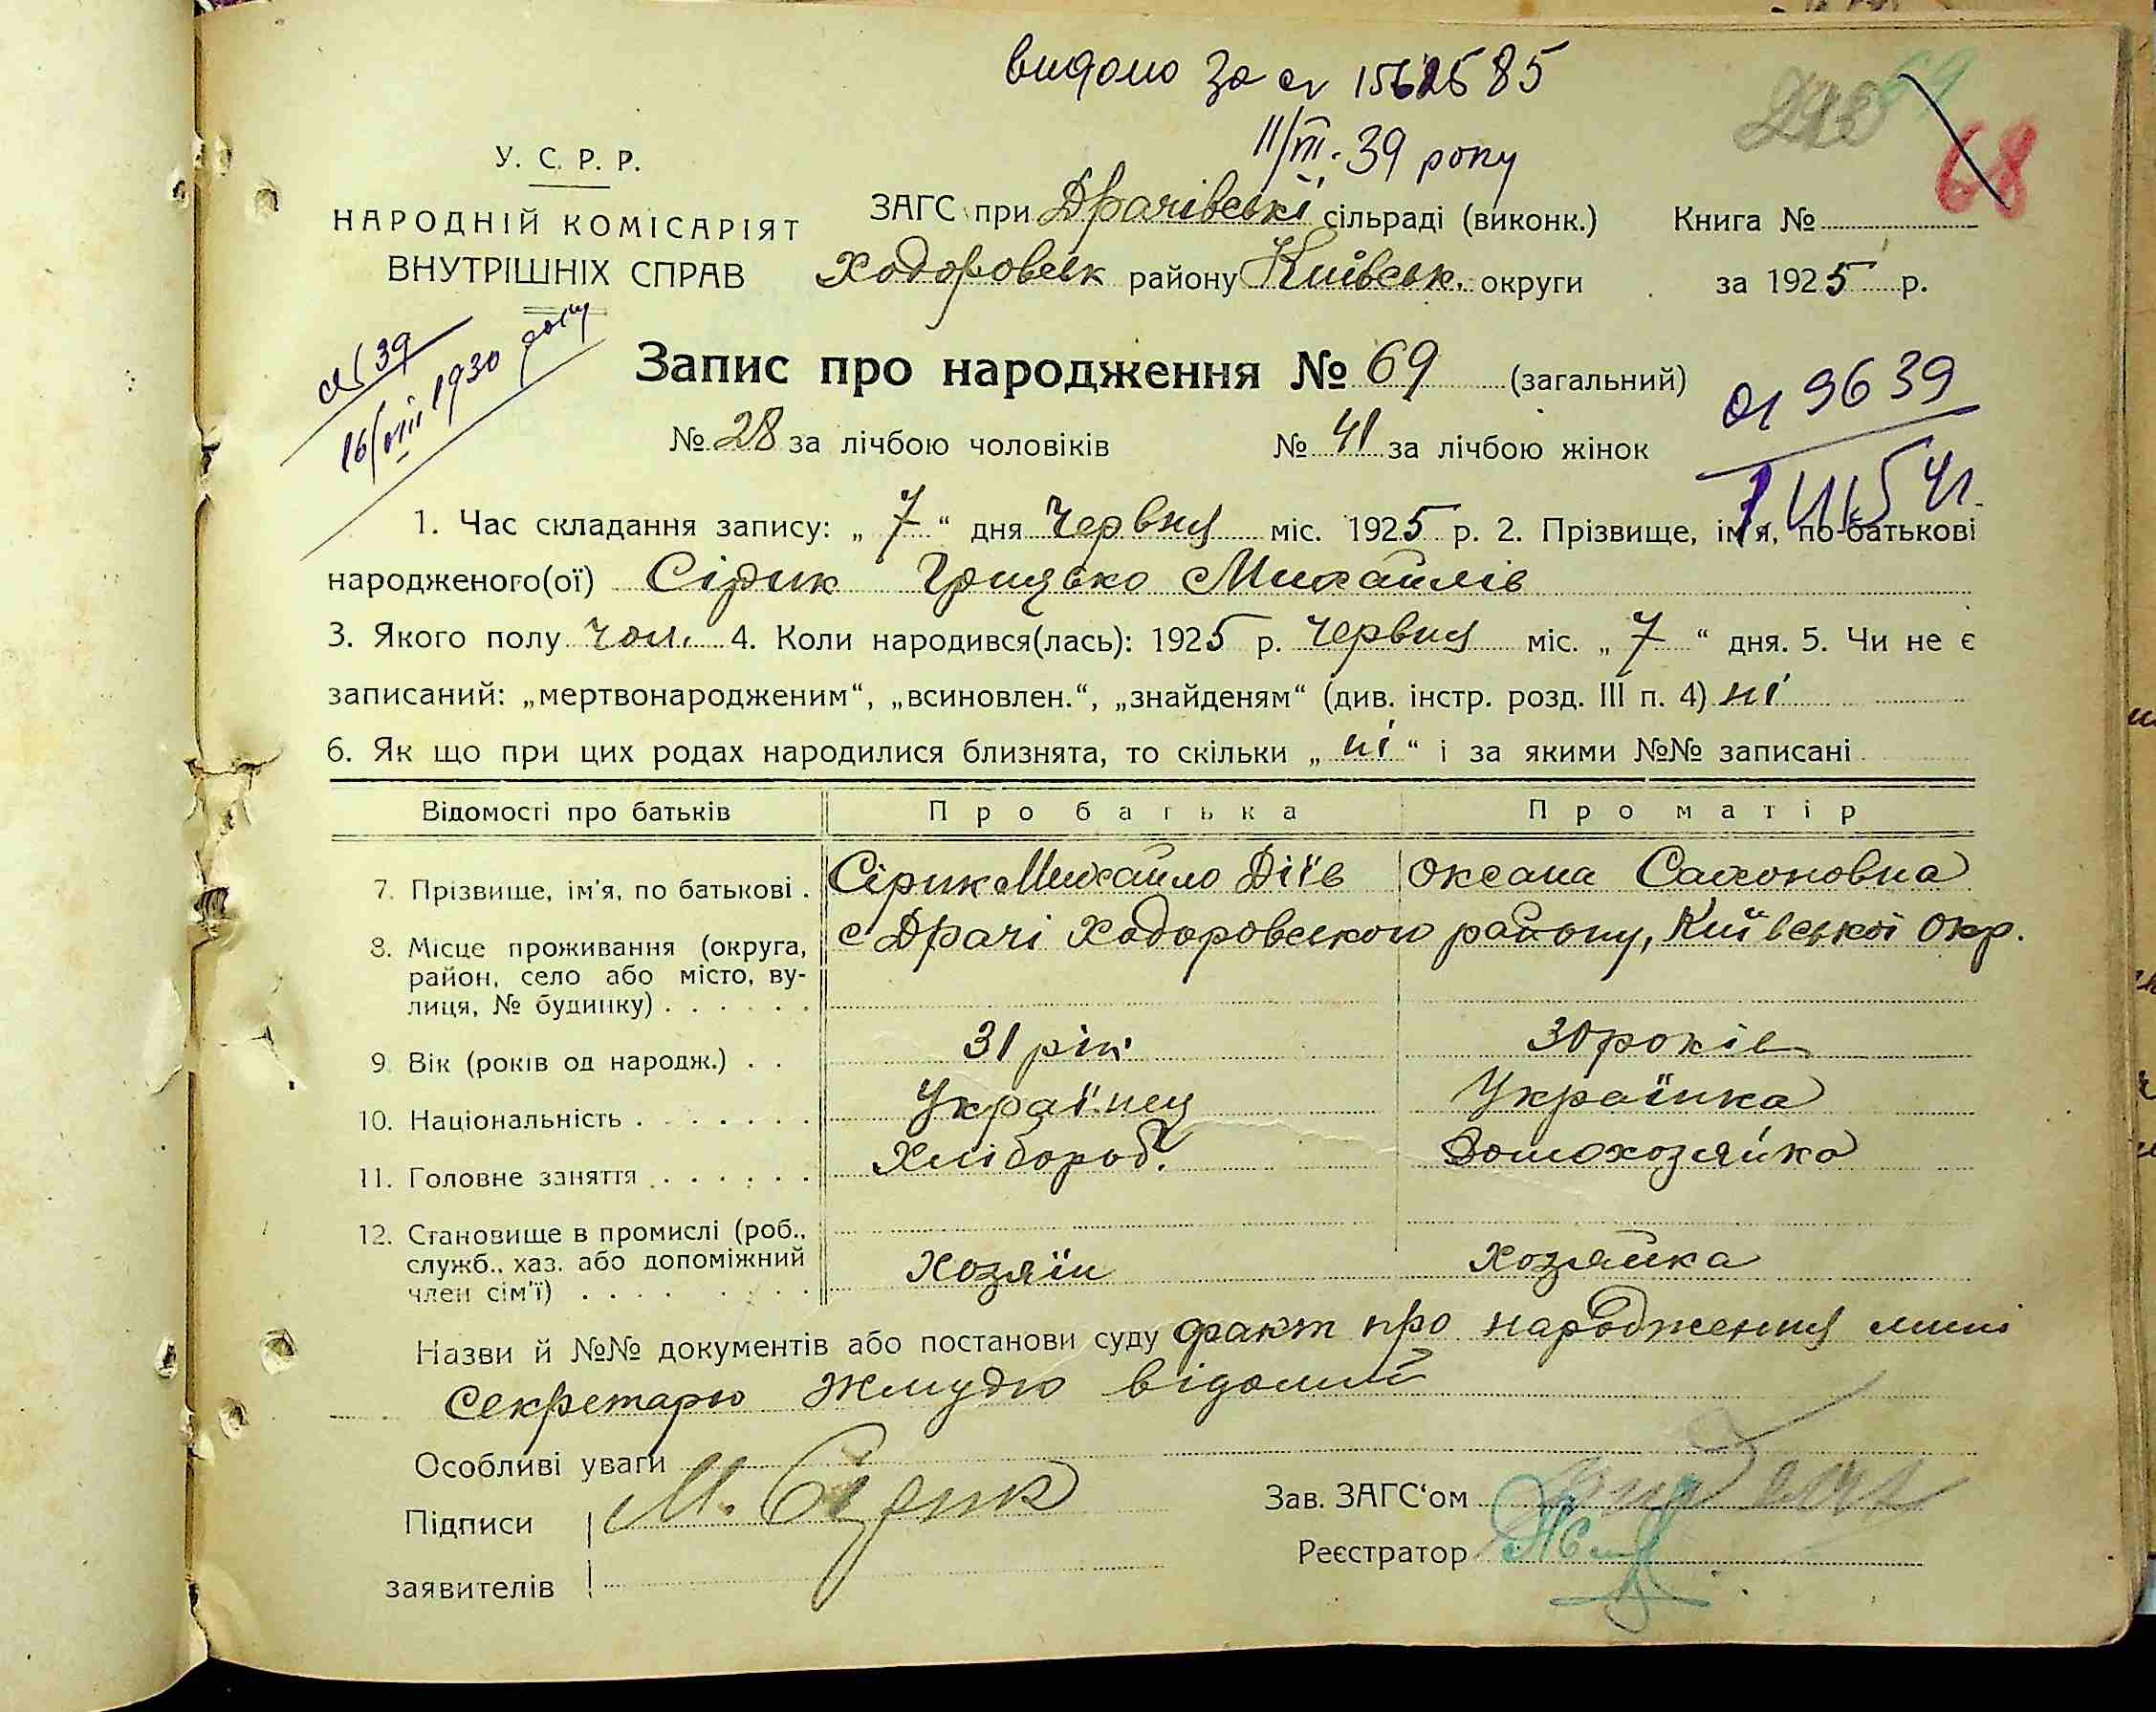 видано за 1562585
11/III. 39 року
68
У. С. Р. Р.
НАРОДНІЙ КОМІСАРІЯТ
ВНУТРІШНІХ СПРАВ
ЗАГС при Драчівські сільраді (виконк.)
Ходоровськ району Київськ. округи
Книга №
за 1925 р.
39
16/VIII 1930 року
Запис про народження № 69 (загальний)
№ 28 за лічбою чоловіків № 41 за лічбою жінок
9639
1. Час складання запису: „ 7 “ дня Червня міс. 1925 р. 2. Прізвище, ім'я, по-батькові
народженого(ої) Сірик Грицько Михайлів
3. Якого полу чол. 4. Коли народився(лась): 1925 р. Червня міс. „ 7 “ дня. 5. Чи не є
записаний: „мертвонародженим“, „всиновлен.“, „знайденям“ (див. інстр. розд. III п. 4) ні
6. Як що при цих родах народилися близнята, то скільки „ ні “ і за якими №№ записані
Відомості про батьків Про батька Про матір
7. Прізвище, ім'я, по батькові . Сірик Михайло Діїв Оксана Сахоновна
8. Місце проживання (округа, район, село або місто, вулиця, № будинку) . . . . . . с Драчі Ходоровського району, Київської Окр.
9. Вік (років од народж.) . . 31 рік 30 років
10. Національність . . . . . . . Українец Українка
11. Головне заняття . . . . . . Хлібороб. Домохозяйка
12. Становище в промислі (роб., служб., хаз. або допоміжний член сім'ї) . . . . . . . . Хозяїн Хозяйка
Назви й №№ документів або постанови суду факт про народження мині
Секретарю Жмудю відомий
Особливі уваги
Підписи М. Сірик
заявителів
Зав. ЗАГС‘ом
Реєстратор